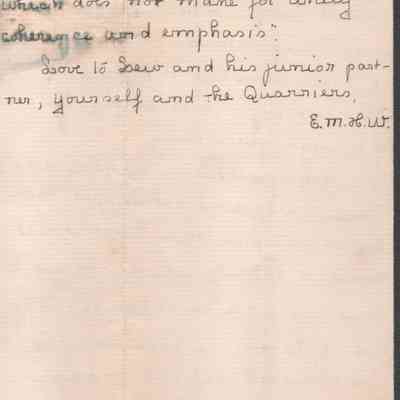 which does not make for unity
coherence and emphasis".
Love to Lew and his junior part-
ner, yourself and the Quarriers,
E.M.H.W.